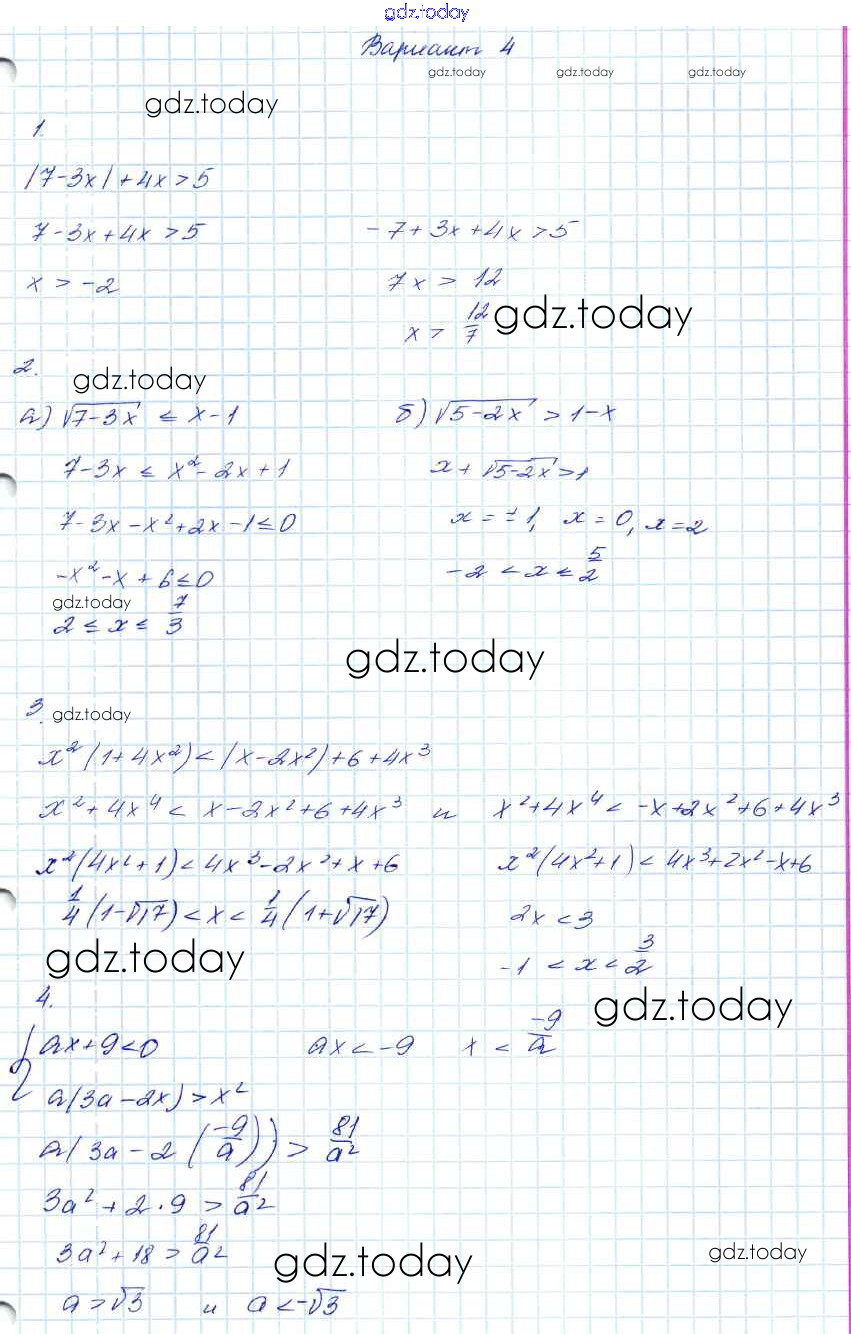 gdz.today
Вариант 4
gdz.today gdz.today gdz.today
gdz.today
1.
|7-3x|+4x>5
7-3x+4x>5 -7+3x+4x>5
x>-2 7x>12
x>12/7 gdz.today
2.
gdz.today
а) √(7-3x) ≤ x-1 б) √(5-2x) > 1-x
7-3x ≤ x²-2x+1 x+√(5-2x)>1
7-3x-x²+2x-1≤0 x=±1, x=0, x=2
-x²-x+6≤0 -2<x≤5/2
gdz.today
2≤x≤7/3
gdz.today
3. gdz.today
x²(1+4x²)<|x-2x²)+6+4x³
x²+4x⁴<x-2x²+6+4x³ и x²+4x⁴<-x+2x²+6+4x³
x²(4x²+1)<4x³-2x²+x+6 x²(4x²+1)<4x³+2x²-x+6
1/4(1-√17)<x<1/4(1+√17) 2x<3
gdz.today -1<x<3/2
4. gdz.today
{ax+9<0 ax<-9 x<-9/a
a(3a-2x)>x²
a(3a-2(-9/a))>81/a²
3a²+2·9>81/a²
3a²+18>81/a²
gdz.today gdz.today
a>√3 и a<-√3